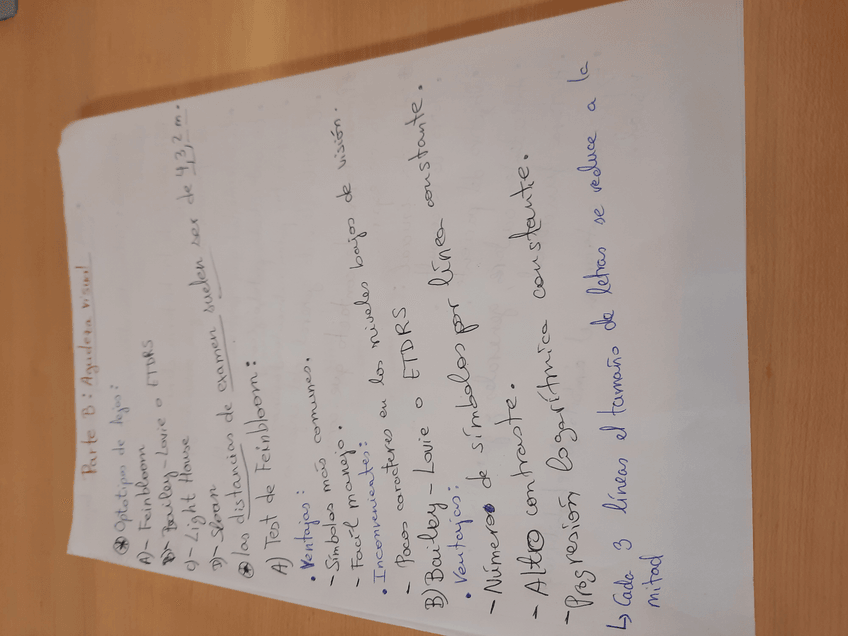 Parte B: Agudeza visual
⊛ Optotipos de lejos:
A)- Feinbloom
B)- Bailey-Lovie o ETDRS
C)- Light House
D)- Sloan
⊛ Las distancias de examen suelen ser de 4,3,2 m.
A) Test de Feinbloom:
• Ventajas:
- Símbolos más comunes.
- Facíl manejo.
• Inconvenientes:
- Pocos caracteres en los niveles bajos de visión.
B) Bailey-Lovie o ETDRS
• Ventajas:
- Número de símbolos por línea constante.
- Alto contraste.
- Progresión logarítmica constante.
↳ Cada 3 líneas el tamaño de letras se reduce a la
mitad